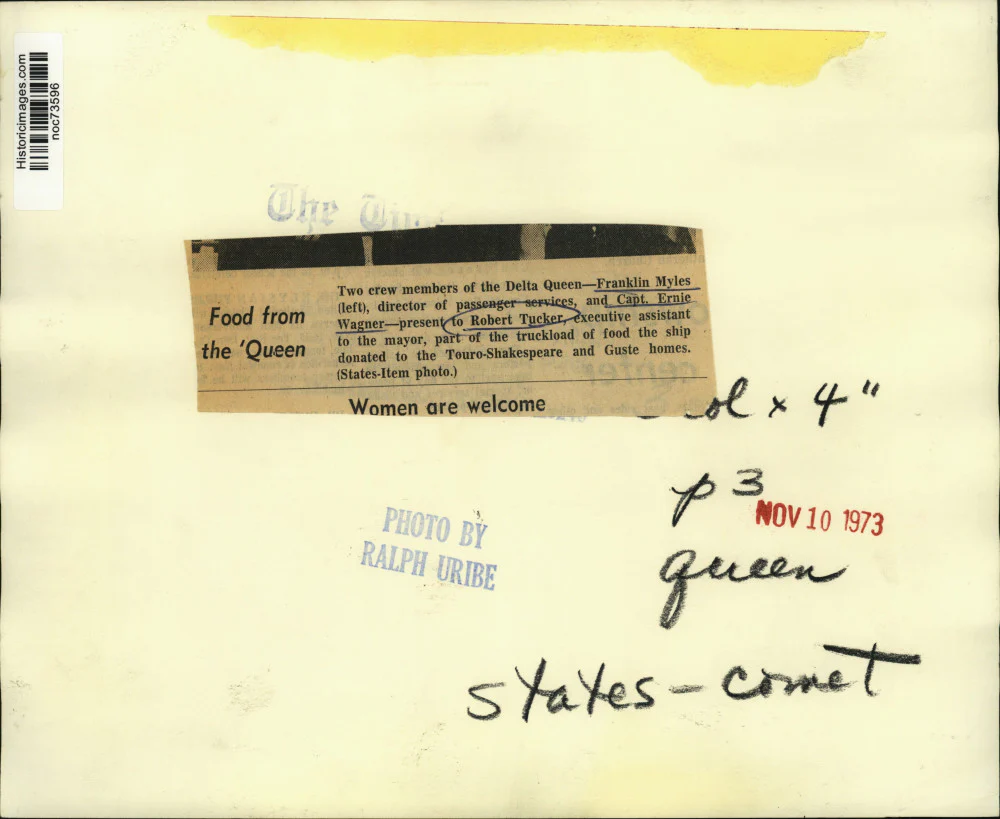 Historicimages.com
noc73596
The
Food from
the 'Queen
Two crew members of the Delta Queen—Franklin Myles
(left), director of passenger services, and Capt. Ernie
Wagner—present to Robert Tucker, executive assistant
to the mayor, part of the truckload of food the ship
donated to the Touro-Shakespeare and Guste homes.
(States-Item photo.)
Women are welcome
x 4"
p 3
NOV 10 1973
PHOTO BY
RALPH URIBE
queen
states-comet